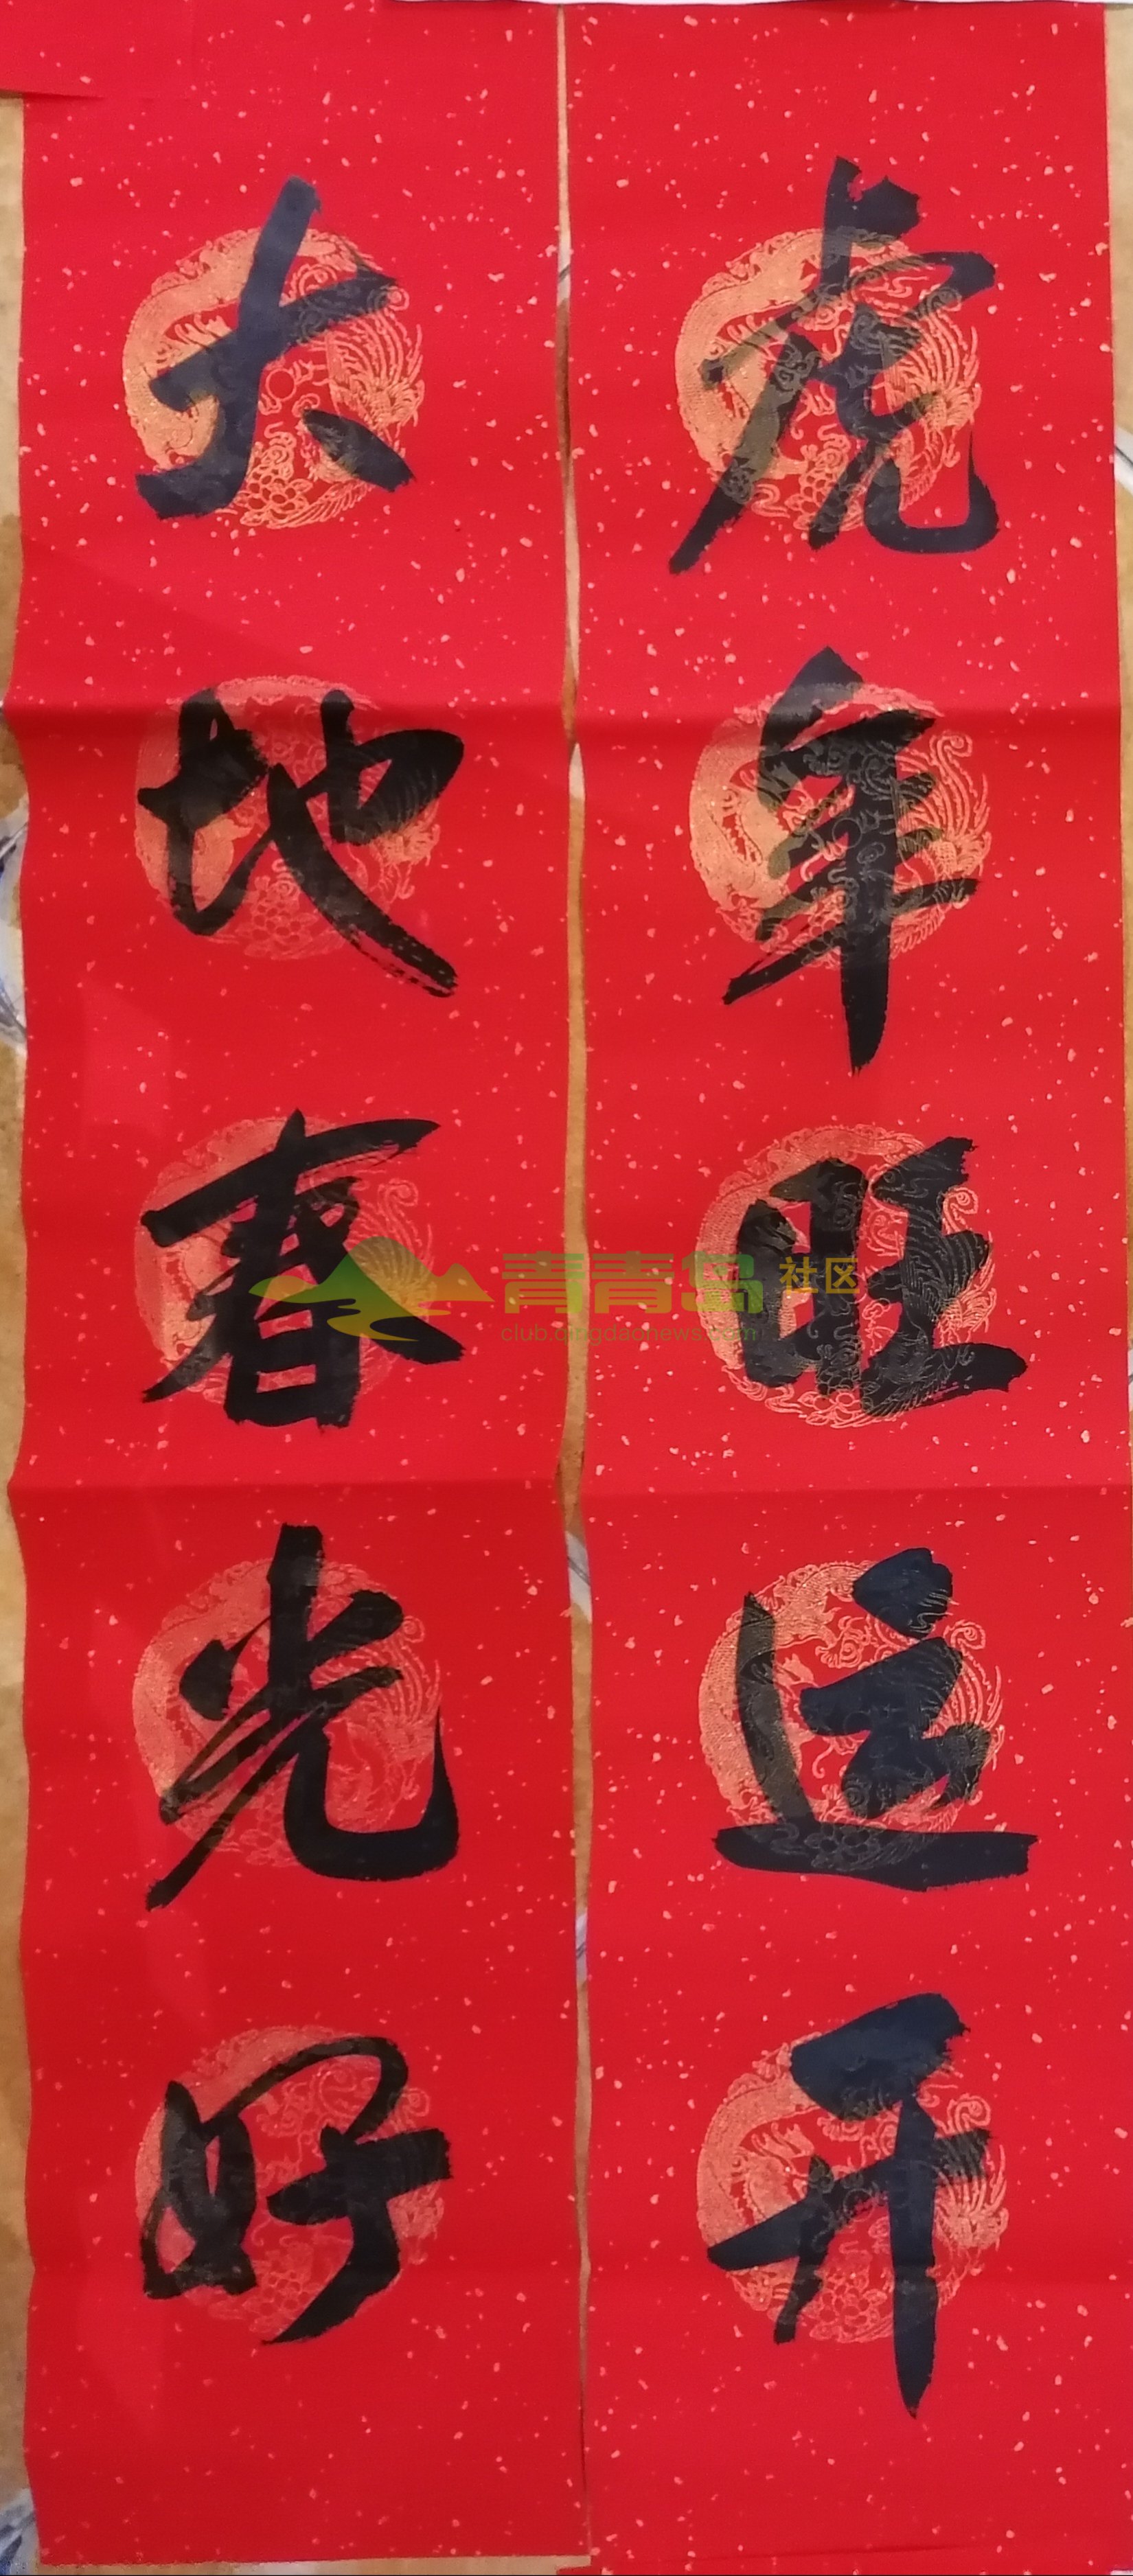 虎年旺运开
大地春光好
青青岛社区
club.qingdaonews.com